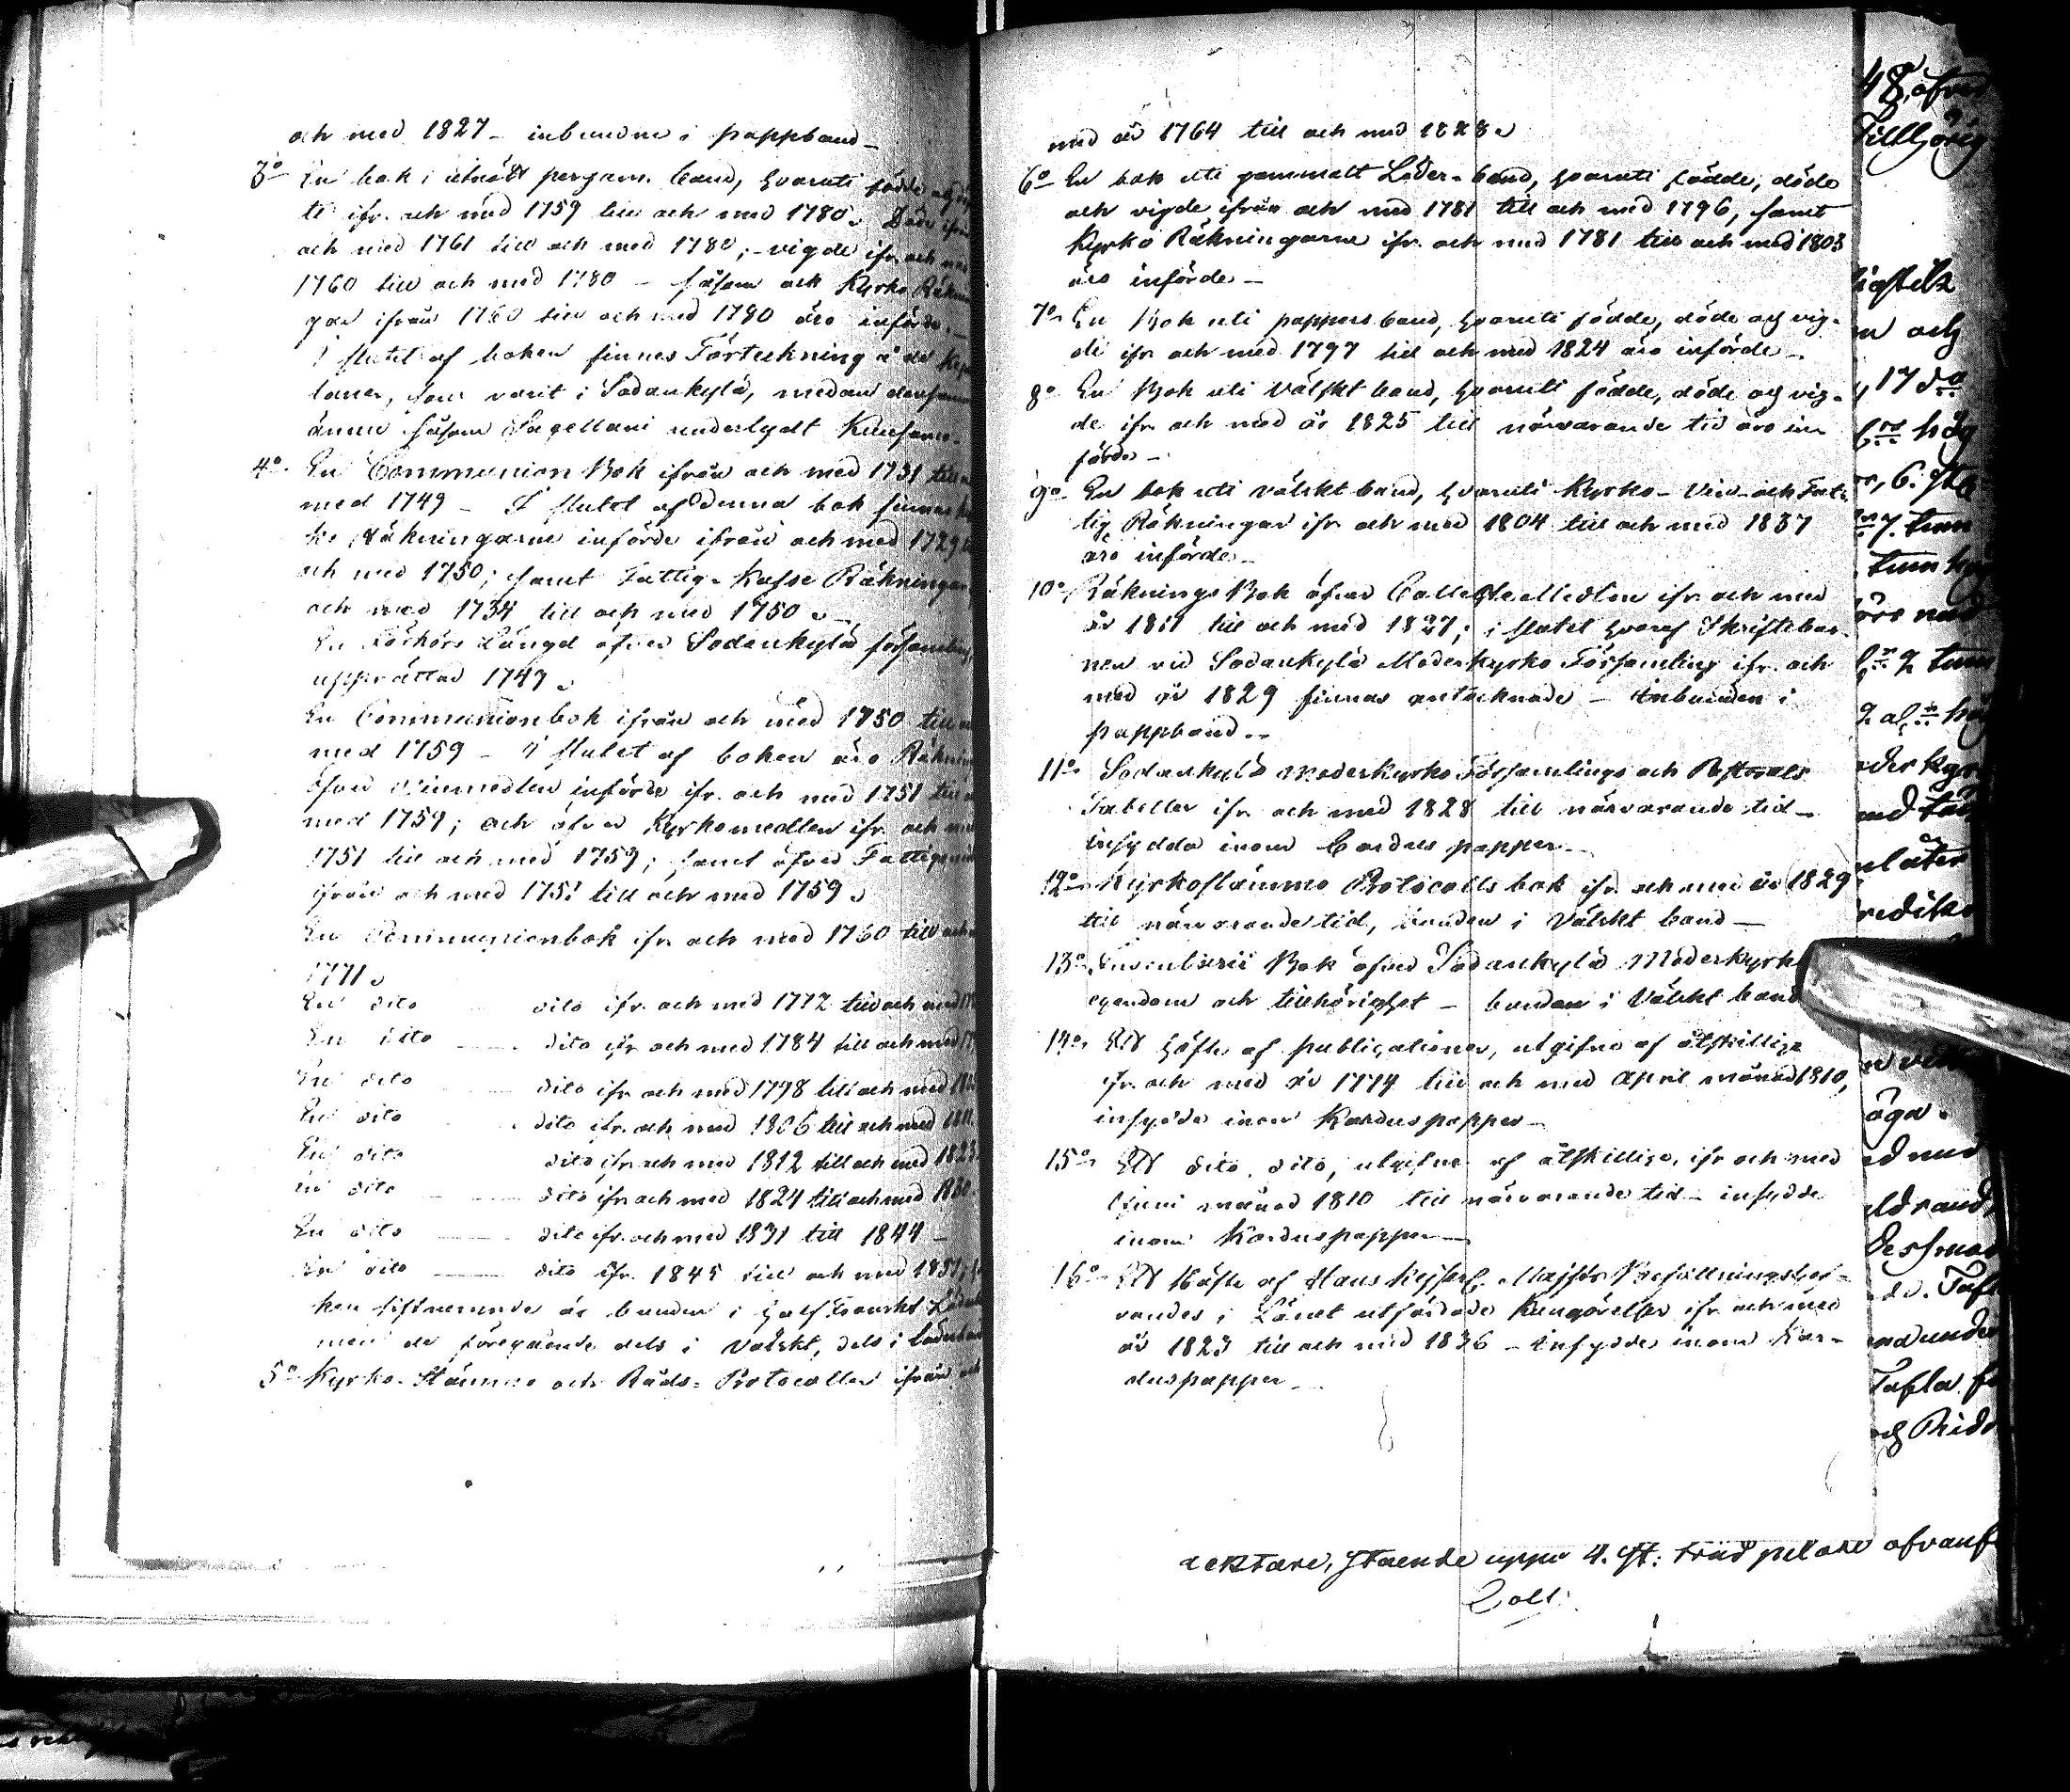 och med 1827 – inbundne i pappband –
3o En bok i utnött pergam. band, hvaruti födde och
te ifr. och med 1759 till och med 1780. Döde ifr
och med 1761 till och med 1780; – vigde ifr. och med
1760 till och med 1780 – såsom ock Kyrko Räkn
gar ifrån 1760 till och med 1780 äro införde. –
I slutet af boken finnes Förteckning å de
laner, som varit i Sodankylä, medan densamma
ännu såsom Sacellani underlydt Kemi
4o En Communion Bok ifrån och med 1731 till
med 1749 – I slutet af denna bok finnas
ko Räkningarne införde ifrån och med 1729
och med 1750; samt Fattig-Kasse Räkningar
och med 1734 till och med 1750.
En Läsförs Längd öfver Sodankylä församling
upprättad 1749.
En Communionbok ifrån och med 1750 till
med 1759 – I slutet af boken äro Räknin
öfver Vinmedlen införde ifr. och med 1751 till
med 1759; och öfver Kyrkomedlen ifr. och med
1751 till och med 1759; samt öfver Fattig
ifrån och med 1751 till och med 1759.
En Communionbok ifr. och med 1760 till och
1771.
En dito dito ifr. och med 1772 till och med
En dito dito ifr. och med 1784 till och med
En dito dito ifr. och med 1798 till och med
En dito dito ifr. och med 1806 till och med 1811.
En dito dito ifr. och med 1812 till och med 1823.
En dito dito ifr. och med 1824 till och med 1830.
En dito dito ifr. och med 1831 till 1844 –
En dito dito ifr. 1845 till och med 1851;
ken sistnämnde är bunden i half Franskt
men de föregående dels i Välskt, dels i läderband
5o Kyrko-Stämmo och Råds-Protocoller ifrån och
med år 1764 till och med 1828.
6o En bok uti gammalt Läder-band, hvaruti födde, döde
och vigde ifrån och med 1781 till och med 1796, samt
Kyrko Räkningarne ifr. och med 1781 till och med 1803
äro införde –
7o En Bok uti pappersband, hvaruti födde, döde och vig-
de ifr. och med 1797 till och med 1824 äro införde –
8o En Bok uti Välskt band, hvaruti födde, döde och vig-
de ifr. och med år 1825 till närvarande tid äro in-
förde –
9o En bok uti välskt band, hvaruti Kyrko- Vin- och Fat-
tig Räkningar ifr. och med 1804 till och med 1837
äro införde –
10o Räknings Bok öfver Collectmedlen ifr. och med
år 1811 till och med 1827; i slutet hvaraf Skriftebar-
nen vid Sodankylä Moderkyrko Församling ifr. och
med år 1829 finnas antecknade – inbunden i
pappband. –
11o Sodankylä Moderkyrko Församlings och Pastorats
Tabeller ifr. och med 1828 till närvarande tid –
insydda inom Cardus papper –
12o Kyrkostämmo Protocolls bok ifr. och med år 1829
till närvarande tid, bunden i Välskt band –
13o Inventarii Bok öfver Sodankylä Moderkyrk
egendom och tillhörighet – bunden i Välskt band
14o Ett häfte af publicationer, utgifne af åtskillige
ifr. och med år 1774 till och med April månad 1810,
insydde inom Karduspapper –
15o Ett dito dito, utgifne af åtskillige, ifr. och med
Juni månad 1810 till närvarande tid – insydde
inom Karduspapper –
16o Ett Häfte af Hans Kejserl. Maj:ts Befallningshaf-
vandes i Länet utfärdade Kungörelser ifr. och med
år 1823 till och med 1836 – insydde inom Kar-
duspapper –
48, öfver
Tillhörig
och
17
hög
6. st
7. tum
tum
2 tum
Tafla
under
lektare, stående uppå 4. st. träd pelare